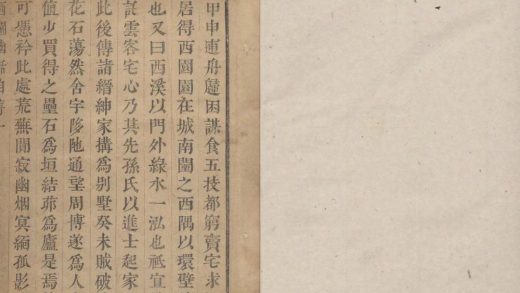 甲申舟困謀食五技都窮賣宅求
居得西園園在城南闉之西隅以環壁
也又曰西溪以門外綠水一泓也祗宜
託雲客宅心乃其先孫氏以進士起家
此後傳諸縉紳家搆爲別墅癸未賊破
花石蕩然舍宇陊陁通望周博遂爲人
値少買得之壘石爲垣結茆爲廬是焉
可憑矜此處荒蕪闃寂幽烟冥緬孤影